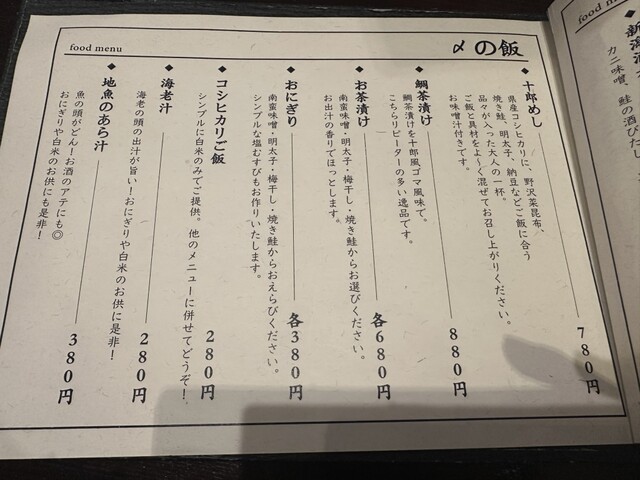 food menu
〆の飯
◆十郎めし 780円
県産コシヒカリに、野沢菜昆布、
焼き鮭、明太子、納豆などご飯に合う
品々が入った大人の一杯。
ご飯と具材をよ〜く混ぜてお召し上がりください。
お味噌汁付きです。
◆鯛茶漬け 880円
鯛茶漬けを十郎風ゴマ風味で。
こちらリピーターの多い逸品です。
◆お茶漬け 各680円
南蛮味噌・明太子・梅干し・焼き鮭からお選びください。
お出汁の香りでほっとします。
◆おにぎり 各380円
南蛮味噌・明太子・梅干し・焼き鮭からおえらびください。
シンプルな塩むすびもお作りいたします。
◆コシヒカリご飯 280円
シンプルに白米のみでご提供。他のメニューに併せてどうぞ！
◆海老汁 280円
海老の頭の出汁が旨い！おにぎりや白米のお供に是非！
◆地魚のあら汁 380円
魚の頭がどん！お酒のアテにも◎
おにぎりや白米のお供にも是非！
food
カニ味噌、鮭の酒びたし